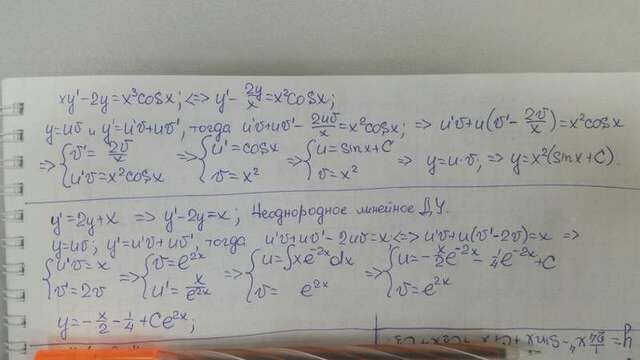 xy'-2y=x³cosx; <=> y'-2y/x=x²cosx;
y=uv и y'=u'v+uv', тогда u'v+uv'-2uv/x=x²cosx; => u'v+u(v'-2v/x)=x²cosx
=> {v'=2v/x => {u'=cosx => {u=sinx+C => y=u·v, => y=x²(sinx+C).
u'v=x²cosx v=x² v=x²
y'=2y+x => y'-2y=x; Неоднородное линейное ДУ.
y=uv; y'=u'v+uv', тогда u'v+uv'-2uv=x <=> u'v+u(v'-2v)=x =>
{u'v=x => {v=e^(2x) => {u=∫xe^(-2x)dx => {u=-x/2 e^(-2x)-1/4 e^(-2x)+C
v'=2v u'=x/e^(2x) v= e^(2x) v=e^(2x)
y=-x/2-1/4+Ce^(2x);